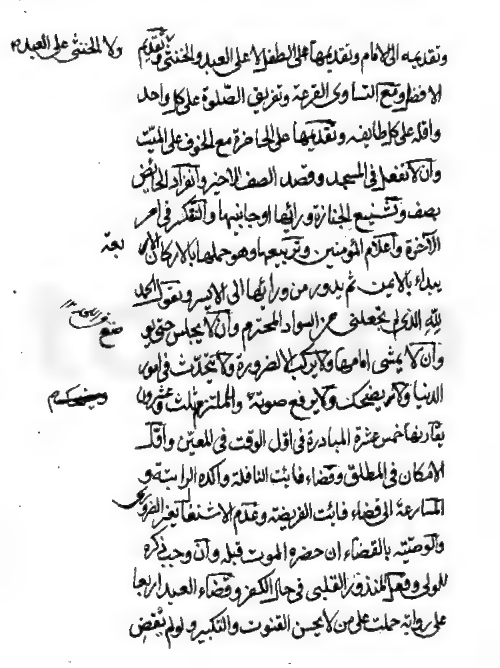 وتقديمه الى الامام وتقديمها على الطفل لا على العبد والخنثى وتقديم
ولا الخنثى على العبد
الافضل ومع التساوى القرعة وتفريق الصلوة على كل واحد
واقله على كل طايفه وتقديمها على الحاضرة مع الخوف على الميّت
وان لا تفعل فى المسجد وقصد الصف الاخير وانفراد الحائض
بصف وتشييع الجنازة ورائها او جانبيها والتفكر فى امر
الآخرة واعلام المؤمنين وتربيعها وهو حملها بالاركان الار
بعة
يبداء بالايمن ثم يدور من ورائها الى الايسر وقول الحمد
لله الذى لم يجعلنى من السواد المخترم وان لا يجلس حتى يو
ضع
وان لا يمشى امامها ولا يركب الا لضرورة ولا يتحدّث فى امور
الدنيا ولا يضحك ولا يرفع صوته والملتزم ثلث وعشرون
يقارنها خمس عشرة المبادرة فى اوّل الوقت فى المعيّن واوّل
الامكان فى المطلق وقضاء فايت النافلة واكده الراتبة و
المسارعة الى قضاء فايت الفريضة وعدم الاشتغال بغير الضرو
رى
والوصيّة بالقضاء ان حضره الموت قبله وان وجب ذكره
للولى وفعل المنذور القلبى فى حال الكفر وقضاء العيد اربعا
على رواية حملت على من لا يحسن القنوت والتكبير ولو لم يقض